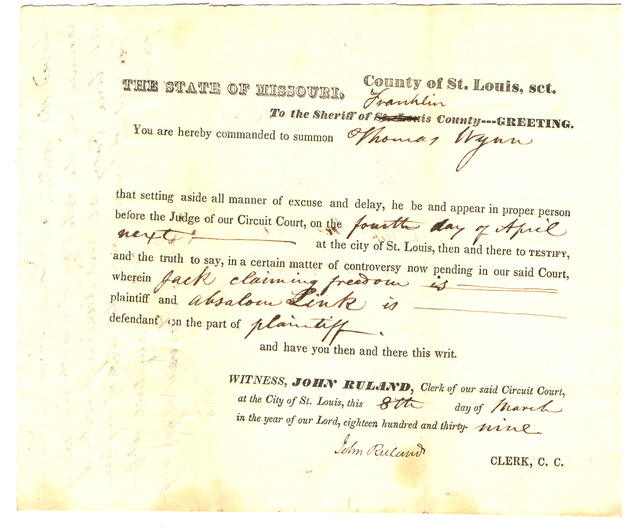 THE STATE OF MISSOURI, County of St. Louis, sct.
Franklin
To the Sheriff of St. Louis County---GREETING.
You are hereby commanded to summon Thomas Wynn
that setting aside all manner of excuse and delay, he be and appear in proper person
before the Judge of our Circuit Court, on the fourth day of April
next at the city of St. Louis, then and there to TESTIFY,
and the truth to say, in a certain matter of controversy now pending in our said Court,
wherein Jack claiming freedom is
plaintiff and Absalom Link is
defendant on the part of plaintiff.
and have you then and there this writ.
WITNESS, JOHN RULAND, Clerk of our said Circuit Court,
at the City of St. Louis, this 8th day of March
in the year of our Lord, eighteen hundred and thirty-nine
John Ruland
CLERK, C. C.